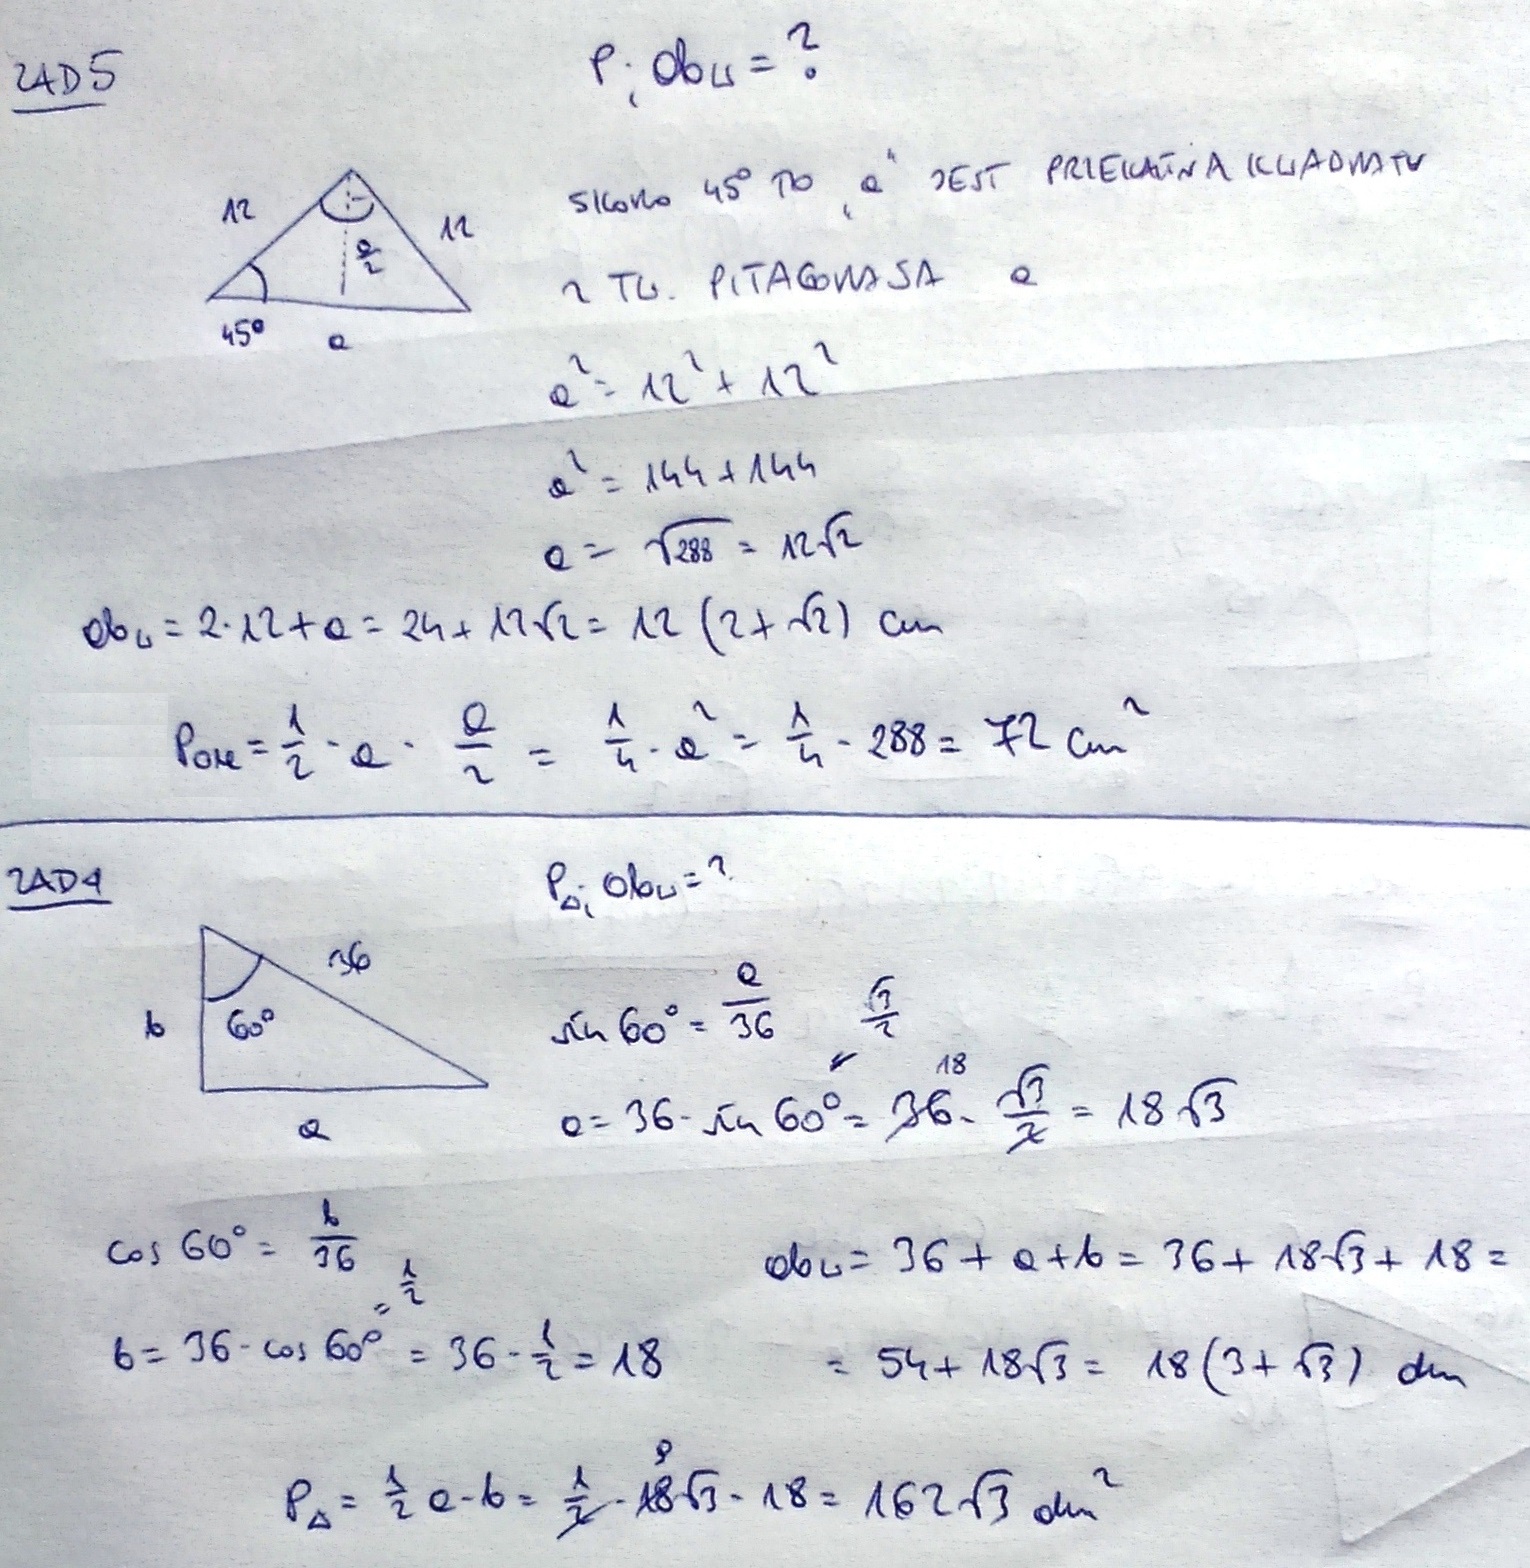 ZAD5
P; Obw = ?
12
12
a/2
45°
a
SKORO 45° TO „a" JEST PRZEKĄTNĄ KWADRATU
Z TW. PITAGORASA a
a² = 12² + 12²
a² = 144 + 144
a = √288 = 12√2
Obw = 2·12 + a = 24 + 12√2 = 12 (2 + √2) cm
P = 1/2 · a · a/2 = 1/4 · a² = 1/4 · 288 = 72 cm²
ZAD4
P△; Obw = ?
36
b
60°
a
sin 60° = a/36 √3/2
18
a = 36 · sin 60° = 36 · √3/2 = 18√3
cos 60° = b/36
= 1/2
b = 36 · cos 60° = 36 · 1/2 = 18
Obw = 36 + a + b = 36 + 18√3 + 18 =
= 54 + 18√3 = 18 (3 + √3) dm
9
P△ = 1/2 a · b = 1/2 · 18√3 · 18 = 162√3 dm²